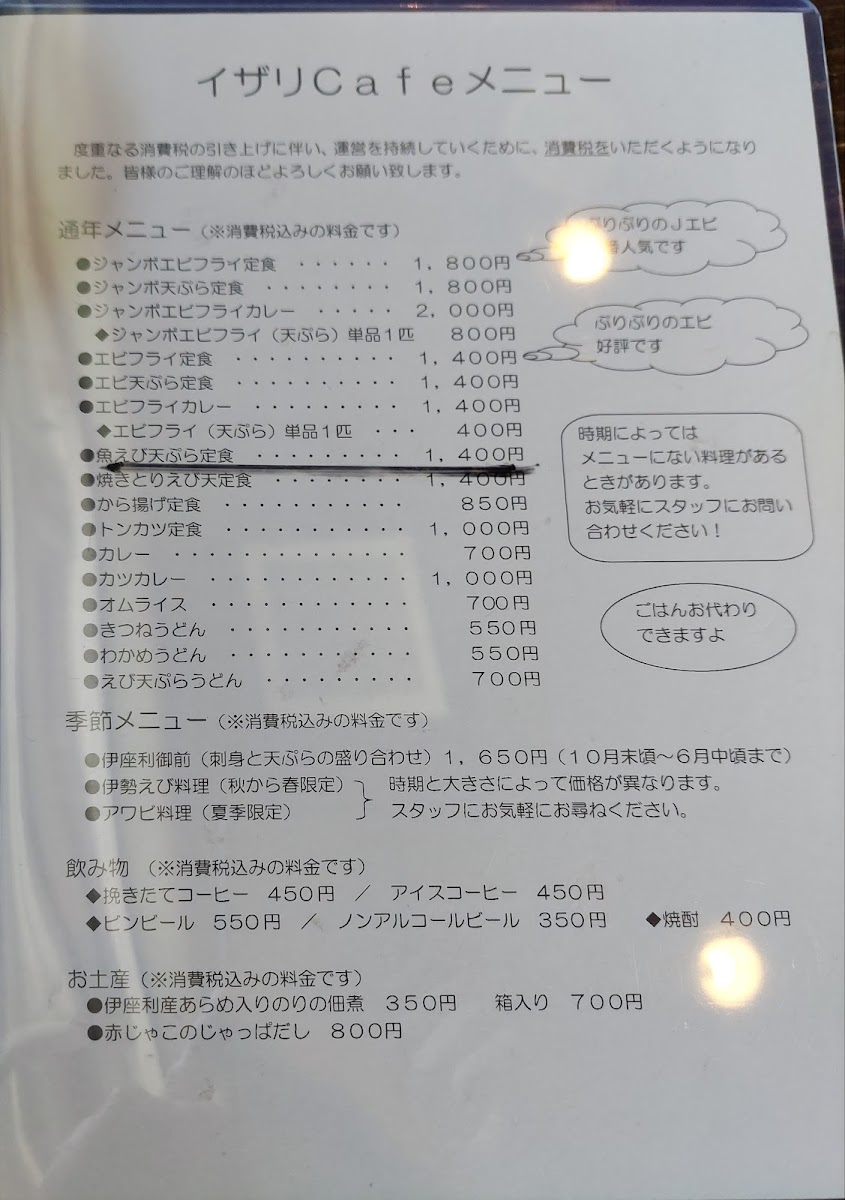 イザリCafeメニュー
度重なる消費税の引き上げに伴い、運営を持続していくために、消費税をいただくようになり
ました。皆様のご理解のほどよろしくお願い致します。
通年メニュー（※消費税込みの料金です）
●ジャンボエビフライ定食 ・・・・・・ 1，800円
●ジャンボ天ぷら定食 ・・・・・・・・ 1，800円
●ジャンボエビフライカレー ・・・・・ 2，000円
◆ジャンボエビフライ（天ぷら）単品1匹 800円
●エビフライ定食 ・・・・・・・・・・ 1，400円
●エビ天ぷら定食 ・・・・・・・・・・ 1，400円
●エビフライカレー ・・・・・・・・・ 1，400円
◆エビフライ（天ぷら）単品1匹 ・・・ 400円
●魚えび天ぷら定食 ・・・・・・・・・ 1，400円
●焼きとりえび天定食 ・・・・・・・・ 1，400円
●から揚げ定食 ・・・・・・・・・・・ 850円
●トンカツ定食 ・・・・・・・・・・・ 1，000円
●カレー ・・・・・・・・・・・・・・ 700円
●カツカレー ・・・・・・・・・・・・ 1，000円
●オムライス ・・・・・・・・・・・・ 700円
●きつねうどん ・・・・・・・・・・・ 550円
●わかめうどん ・・・・・・・・・・・ 550円
●えび天ぷらうどん ・・・・・・・・・ 700円
ぷりぷりのJエビ
人気です
ぷりぷりのエビ
好評です
時期によっては
メニューにない料理がある
ときがあります。
お気軽にスタッフにお問い
合わせください！
ごはんお代わり
できますよ
季節メニュー（※消費税込みの料金です）
●伊座利御前（刺身と天ぷらの盛り合わせ）1，650円（10月末頃～6月中頃まで）
●伊勢えび料理（秋から春限定） 時期と大きさによって価格が異なります。
●アワビ料理（夏季限定） スタッフにお気軽にお尋ねください。
飲み物 （※消費税込みの料金です）
◆挽きたてコーヒー 450円 ／ アイスコーヒー 450円
◆ビンビール 550円 ／ ノンアルコールビール 350円 ◆焼酎 400円
お土産（※消費税込みの料金です）
●伊座利産あらめ入りのりの佃煮 350円 箱入り 700円
●赤じゃこのじゃっぱだし 800円